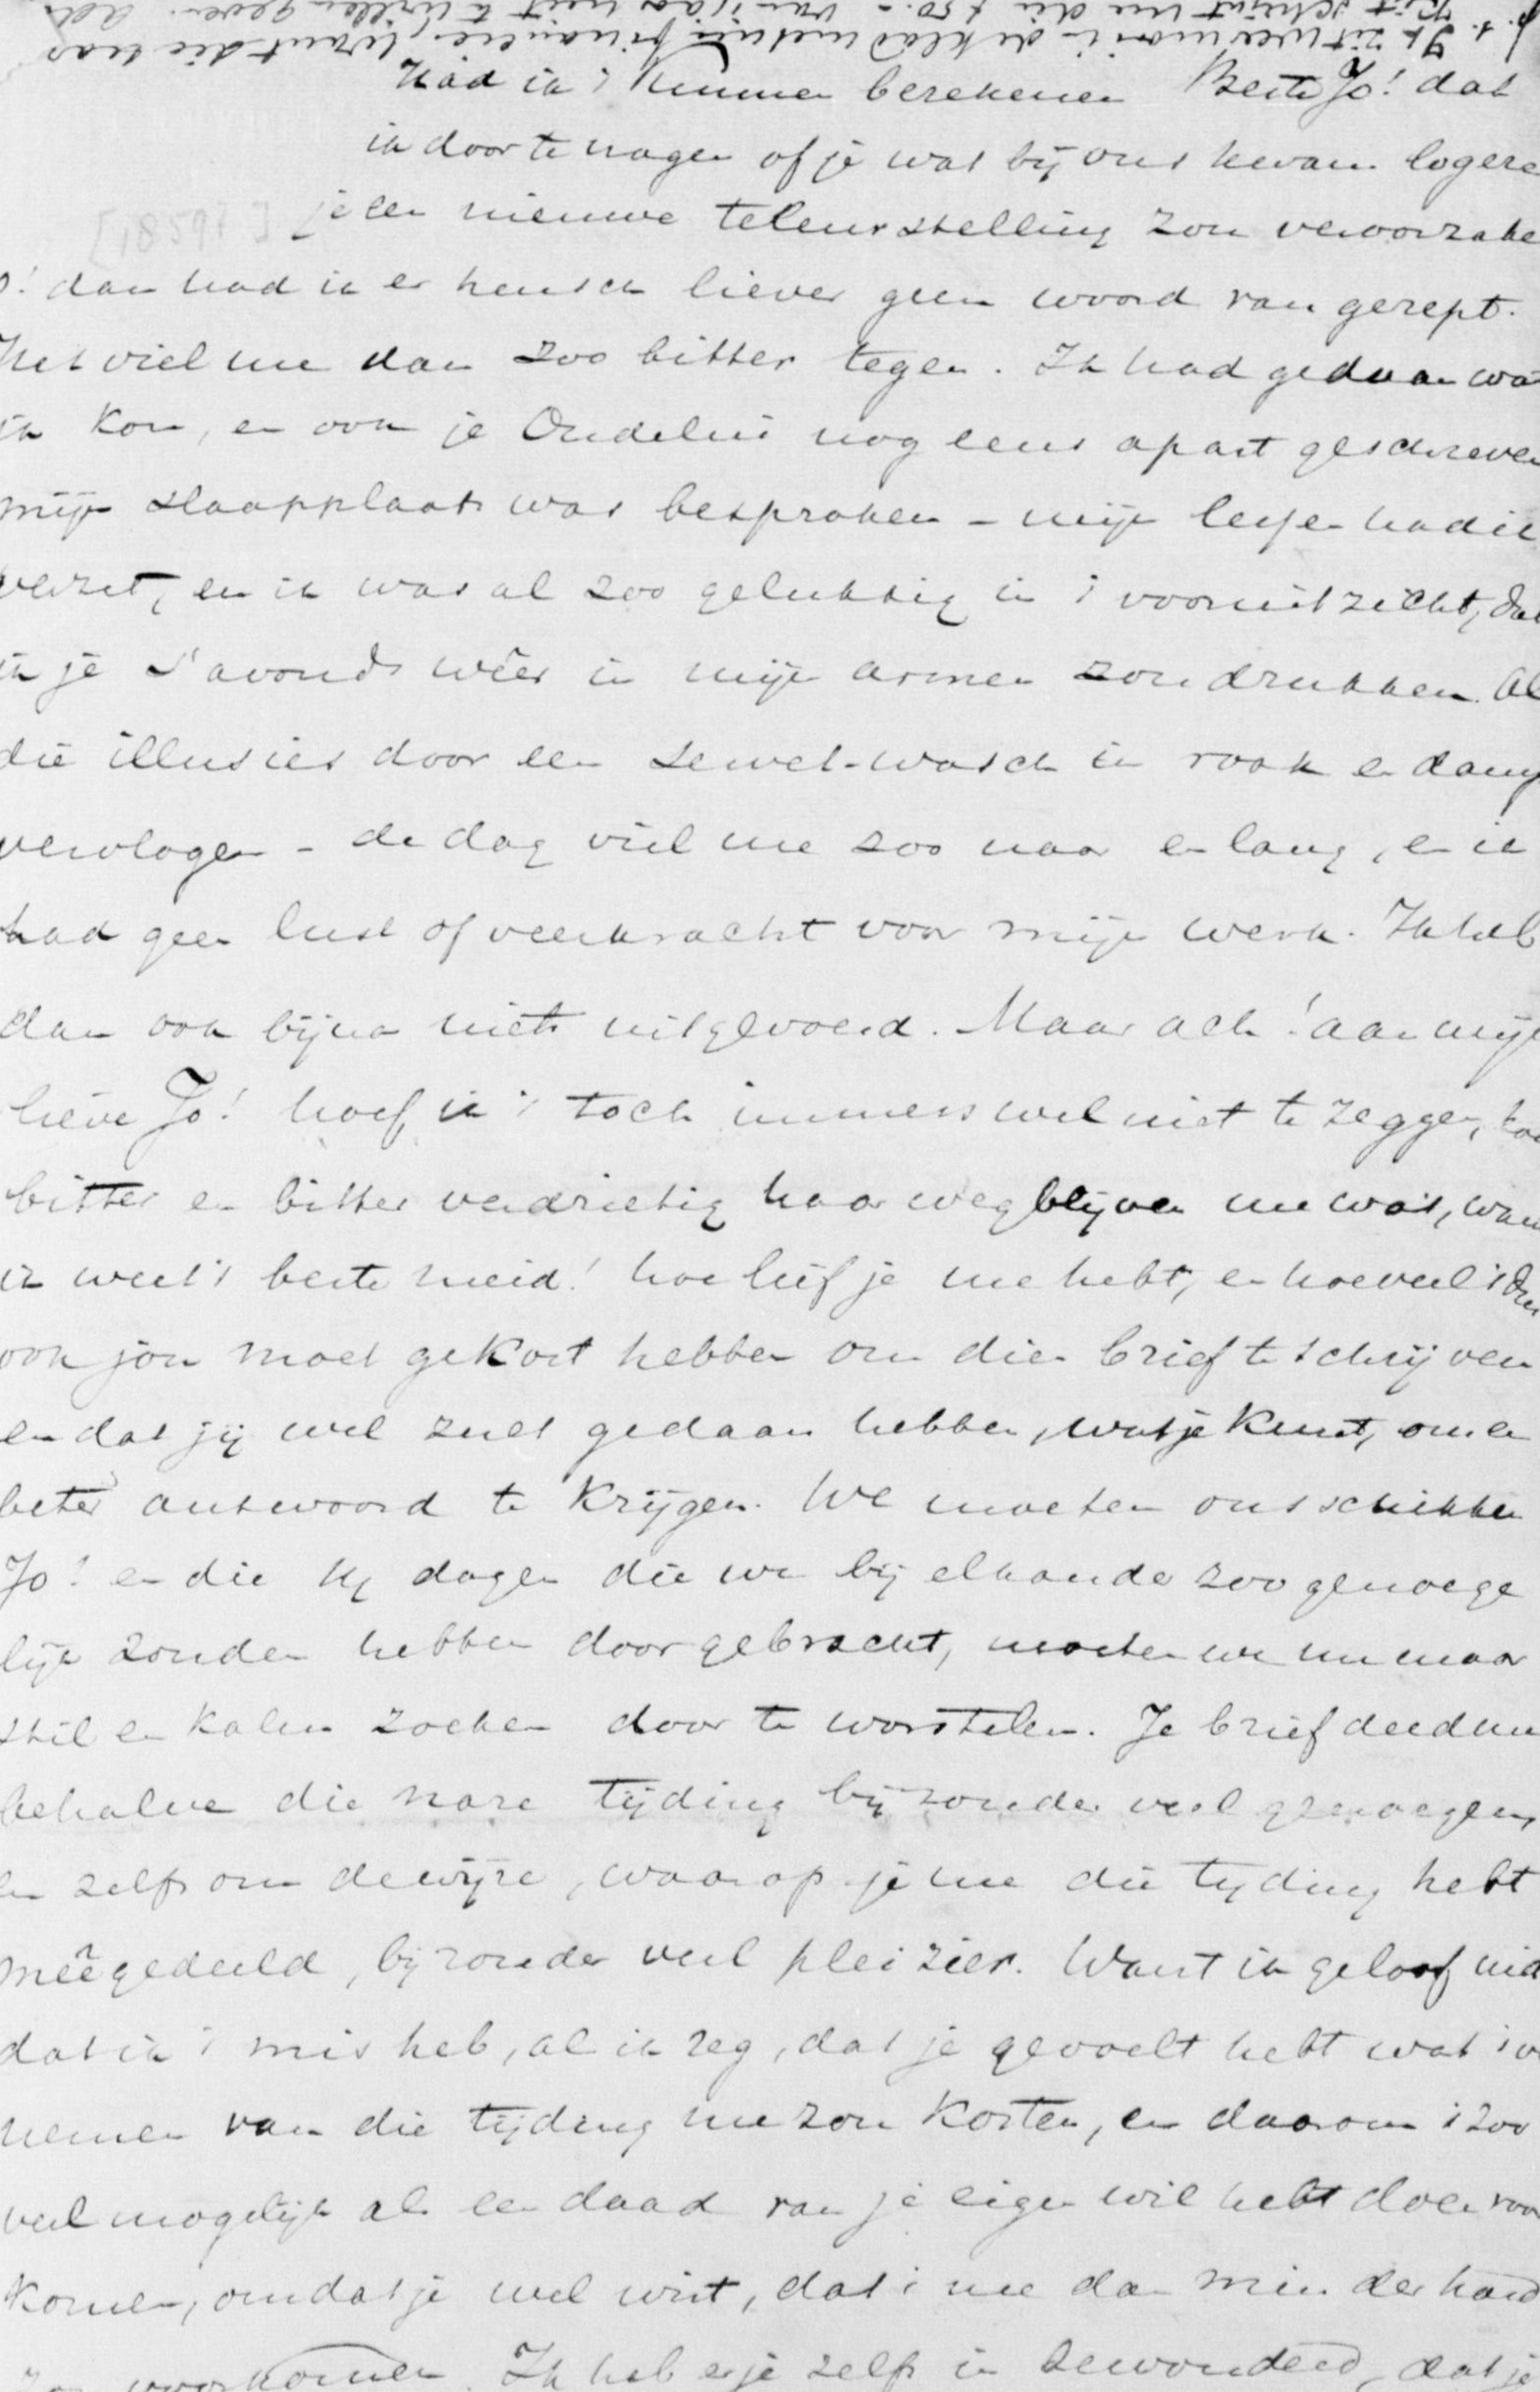 p.s. Ik zit weer mooi in de klad met mijn financien, want die
Piet schijnt me die f 50.- van Klaas niet te willen geven.
Had ik 't kunnen berekenen Beste Jo! dat
ik door te vragen of je wat bij ons kwam logere
je een nieuwe teleurstelling zou veroorzake
[1859?]
o! dan had ik er heusch liever geen woord van gerept.
Het viel me dan zoo bitter tegen. Ik had gedaan wa
ik kon, en ook je Oudelui nog eens apart geschreven
mijn slaapplaats was besproken - mijn lessen had ik
verzet, en ik was al zoo gelukkig in 't vooruitzicht, dat
ik je 's avonds wêer in mijn armen zou drukken. Al
die illusies door een wasch in rook en damp
vervlogen - de dag viel me zoo naar en lang, en ik
had geen lust of veerkracht voor mijn werk. Ik heb
dan ook bijna niets uitgevoerd. Maar ach! aan mijn
lieve Jo! hoef ik 't toch immers wel niet te zeggen, hoe
bitter en bitter verdrietig haar wegblijven me was, want
ik weet 't beste meid! hoe lief je me hebt, en hoeveel 't
ook jou moet gekost hebben om dien brief te schrijven
en dat jij wel zult gedaan hebben, wat je kunt, om en
beter antwoord te krijgen. We moeten ons schikken
Jo! en die dagen die we bij elkander zoo genoege
lijk zouden hebben doorgebracht, moeten we nu maar
stil en kalm zoeken door te worstelen. Je brief deed me
behalve die nare tijding bijzonder veel genoegen,
en zelfs om de wijze, waarop je me die tijding hebt
meêgedeeld, bijzonder veel pleizier. Want ik geloof niet
dat ik 't mis heb, als ik zeg, dat je gevoelt hebt wat 't ver
nemen van die tijding me zou kosten, en daarom 't zoo
veel mogelijk als een daad van je eigen wil hebt doen voor
komen, omdat je wel wist, dat 't me dan minder hard
zou voorkomen. Ik heb er je zelfs in bewonderd, dat je